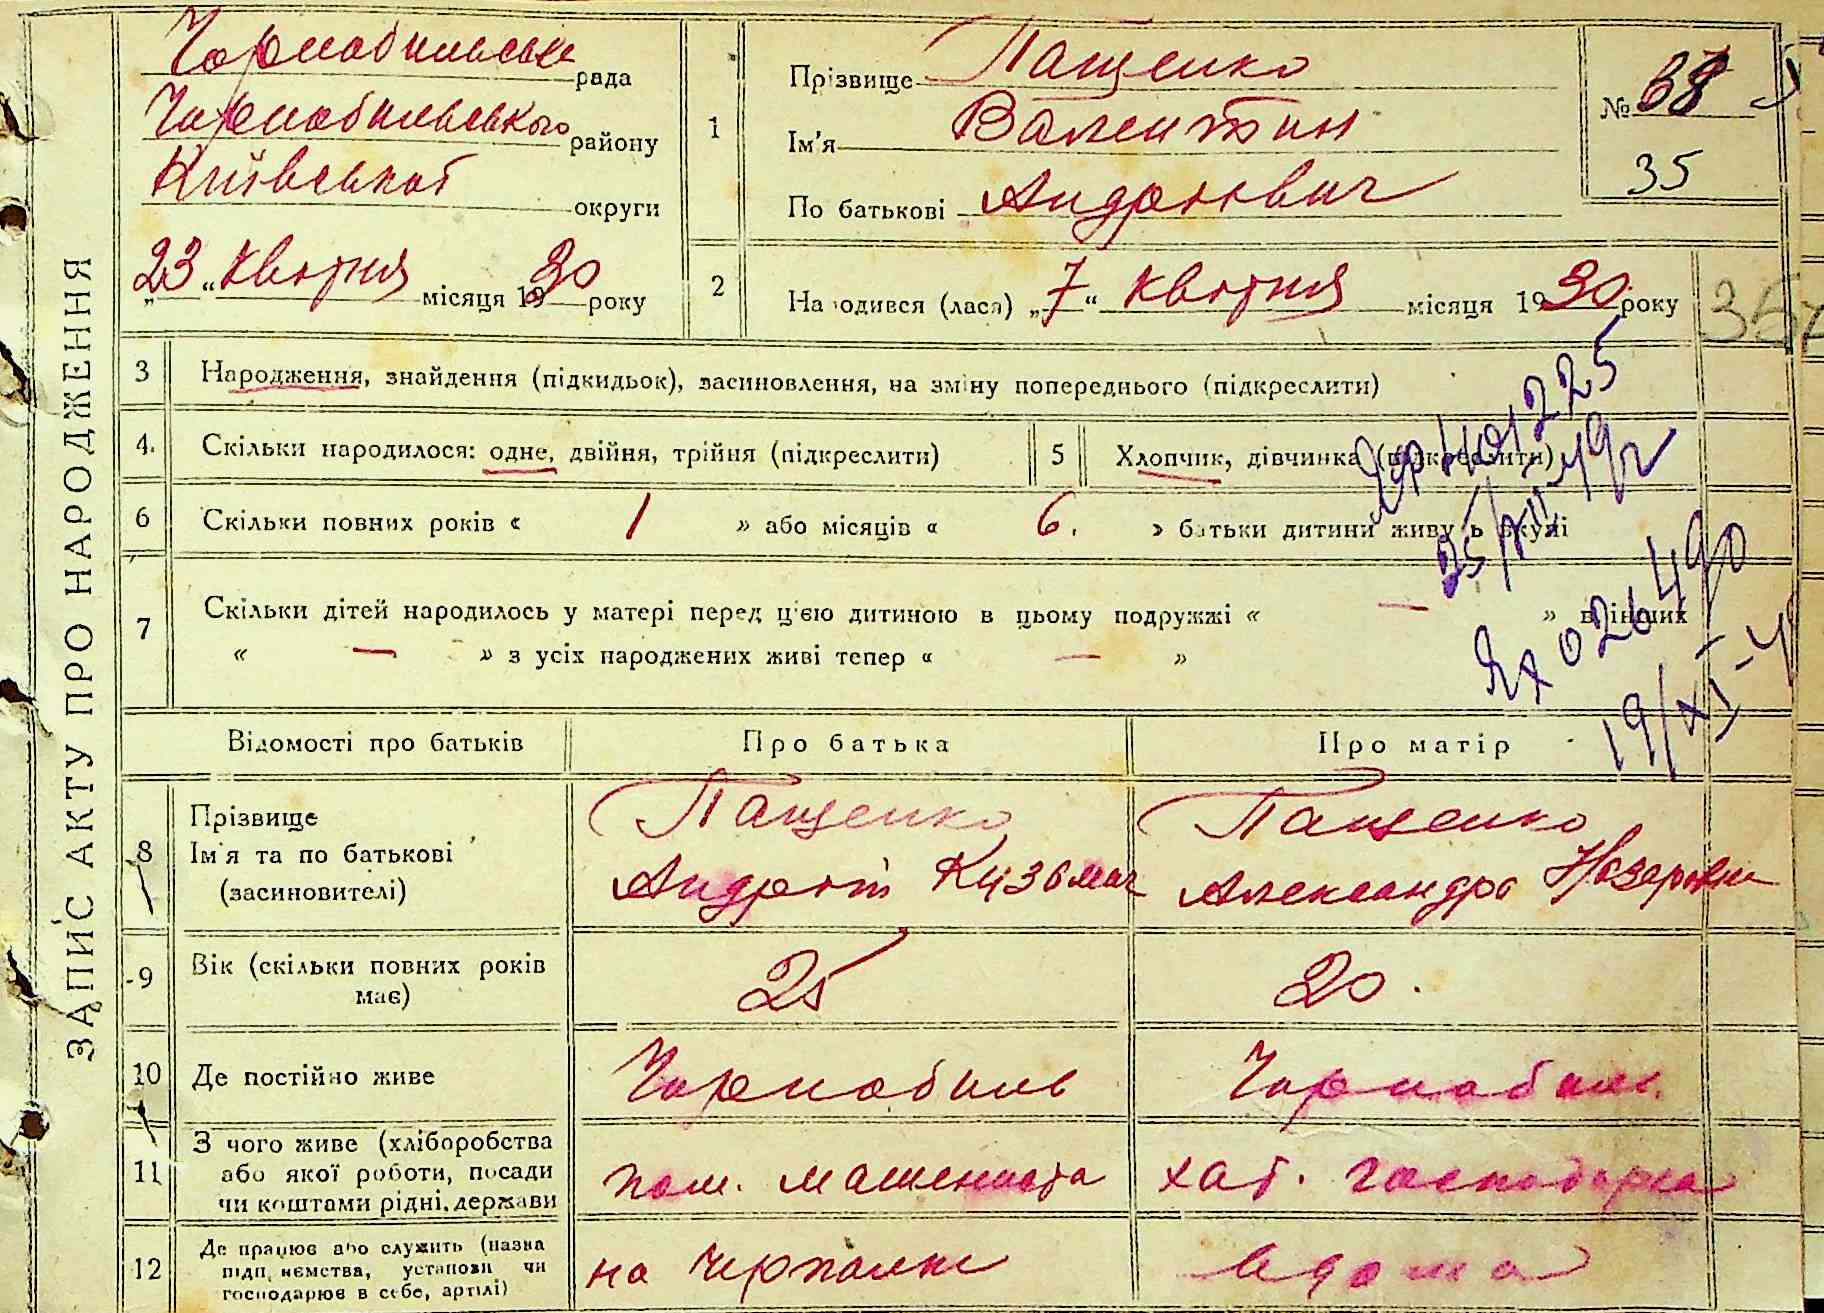 ЗАПИС АКТУ ПРО НАРОДЖЕННЯ
Чорнобильська рада
Чорнобильського району
Київської округи
„23“ квітня місяця 1930 року
1
Прізвище Пащенко
Ім'я Валентин
По батькові Андреевич
№ 68
35
2
Народився (лася) „7“ квітня місяця 1930 року
357
3 Народження, знайдення (підкидьок), засиновлення, на зміну попереднього (підкреслити)
4. Скільки народилося: одне, двійня, трійня (підкреслити)
5 Хлопчик, дівчинка (підкреслити)
6 Скільки повних років « 1 » або місяців « 6. » батьки дитини живуть вкупі
25/XII-49г
7 Скільки дітей народилось у матері перед цією дитиною в цьому подружжі « — » в інших
« — » з усіх народжених живі тепер « — »
026490
19/XI-
Відомості про батьків Про батька Про матір
8 Прізвище
Ім'я та по батькові
(засиновителі)
Пащенко
Андрей Кузьмич
Пащенко
Александра Назаровна
9 Вік (скільки повних років
має)
25
20.
10 Де постійно живе Чорнобиль Чорнобиль.
11 З чого живе (хліборобства
або якої роботи, посади
чи коштами рідні, держави
пом. машениста
хат. господарка
12 Де працює або служить (назва
підприємства, установи чи
господарює в себе, артілі)
на Черпалке
вдома